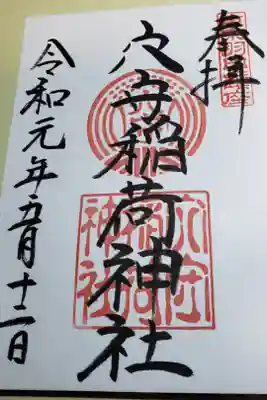 奉拝
穴守稲荷神社
穴守
稲荷
神社
令和元年五月十二日